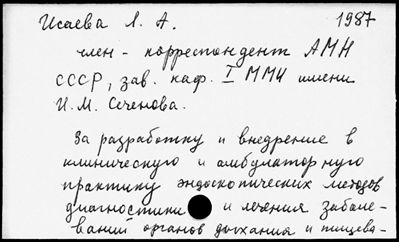 Исаева Л. А. 1987
член-корреспондент АМН
СССР, зав. каф. I ММИ имени
И.М. Сеченова.
За разработку и внедрение в
клиническую и амбулаторную
практику эндоскопических методов
диагностики и лечения заболе-
ваний органов дыхания и пищева-